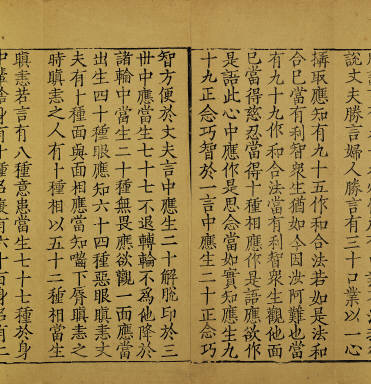 說丈夫勝言婦人勝言有三十口業以一心
攝取應知有九十五作和合法若如是法和
合已當有利智衆生猶如今因汝阿難也當
有九十九作和合法當有利智衆生觀他面
已當得慈忍當得十種相應作是語應欲作
是語此心中應作是思念當如實知應生九
十九正念巧智於一言中應生二十正念巧
智方便於丈夫言中應生二十解脫印於三
世中應當生七十七不退轉輪不為他降於
諸輪中當生二十種無畏應欲觀一面應當
出生四十種眼應知六十四種惡眼瞋恚丈
夫有十種面與面相應當知嚙下脣瞋恚之
時瞋恚之人有十種相以五十二種相當生
瞋恚若言有八種意患當生七十七種於身